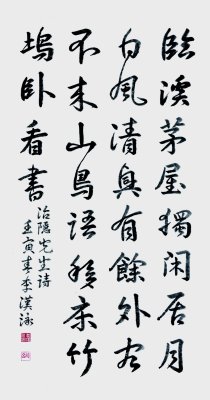 臨溪茅屋獨閑居月
白風清興有餘外客
不來山鳥語移床竹
塢臥看書
冶隱先生詩
壬寅春李漢泳